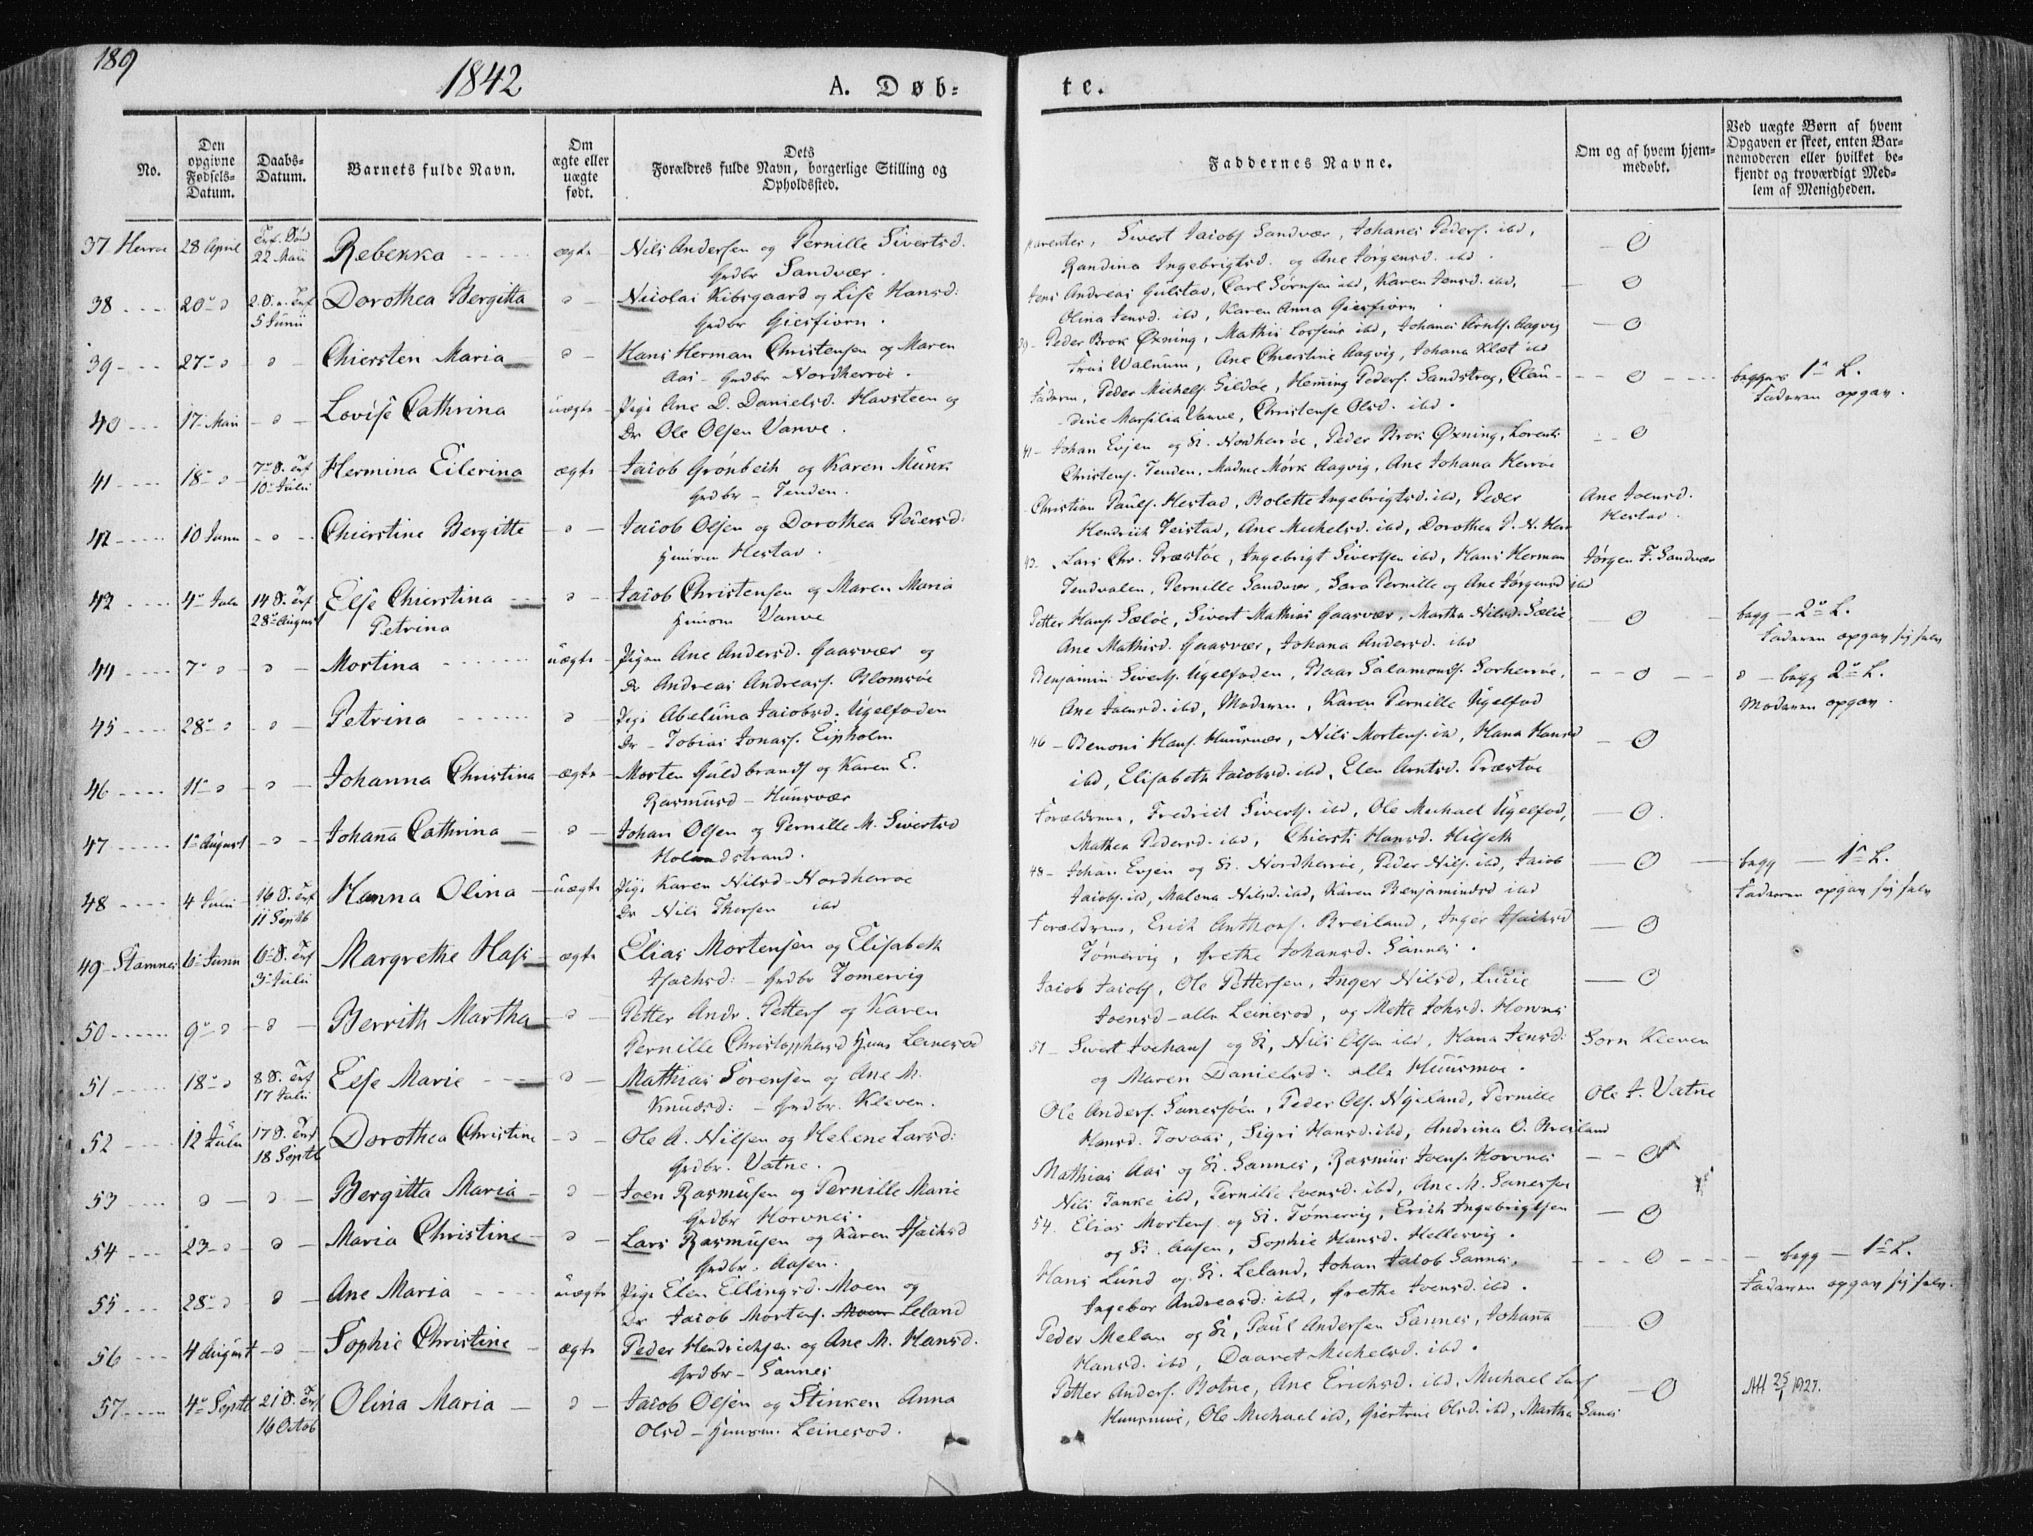 189
1842
A. Døb-
te.
No.
Den opgivne Fødsels-Datum.
Daabs-Datum.
Barnets fulde Navn.
Om ægte eller uægte født.
Dets Forældres fulde Navn, borgerlige Stilling og Opholdssted.
Faddernes Navne.
Om og af hvem hjem-meddøbt.
Ved uægte Børn af hvem Opgaven er skeet, enten Bar-nemoderen eller hvilket be-kjendt og troværdigt Med-lem af Menigheden.
37 Herroe 28 April 22 Maii Rebekka ægte Nils Andersen og Pernille Sivertsd.
Grdbr Sandvær.
Sivert Jacobs Sandvær, Johanes Peders. ibd,
Randina Ingebrigtsd. og Ane Jørgensd. ibd.
38 20 5 Junii Dorothea Bergitta Nicolai Kibsgaard og Lise Hansd:
Grdbr Giesfiorn.
Jens Andreas Gulstad, Carl Sørnsen ibd, Karen Jensd. ibd,
Olina Jensd. ibd, Karen Anna Giesfiorn
39 27 Chiersten Maria Hans Herman Christensen og Maren
Aas - Grdbr Nordherroe.
Peder Brok Øxning, Mathis ibd, Johanes Aagvig
Walnum, Ane Chierstine Aagvig, Johana Klæt ibd
40 17 Maii Lovise Cathrina uægte Pige Ane D. Danielsd. Havsteen og
Dr Ole Olsen Vanve.
Faderen, Peder Michels Sildøe, Heming Peders. Sandstrag, Clau-
dine Marsilia Vanve, Christense Olsd. ibd.
begges 1te L.
Faderen opgav.
41 18 7de S. Trf 10 Julii Hermina Eilerina ægte Jacob Grønbech og Karen Munk
Grdbr - Tenden.
41 - Johan Evjen og H. Nordherrøe, Peder Brok Øxning, Lorents
Christens. Tenden, Madme Mørk Aagvig, Ane Johana Herrøe
42 10 Junii Chierstine Bergitte Jacob Olsen og Dorothea Pedersd:
Huusm Hestad.
Christian Pauls. Hestad, Bolette Ingebrigtsd. ibd, Peder
Hendrich Teistad, Ane Michelsd. ibd, Dorothea P. N. Her
Ane Joensd.
Hestad.
43 4 Julii 14 S. Trf 28 August Else Chierstina
Petrina
Jacob Christensen og Maren Maria
Huusm Vanve
Lars Chr. Præstøe, Ingebrigt Sivertsen ibd, Hans Herman
Tendvalen, Pernille Sandvær, Sara Pernille og Ane Jørgensd ibd
Jørgen F. Sandvær
44 7 Mortina uægte Pigen Ane Andersd. Gaasvær og
Dr Andreas Andreass. Blomsøe
Petter Hans Sæløe, Sivert Mathias Gaasvær, Martha Nilsd. Sæløe
Ane Mathisd. Gaasvær, Johana Andersd. ibd
begg - 2de L.
Faderen opgav sig selv
45 28 Petrina Pige Abeluna Jacobsd. Ugelfoden
Dr - Tobias Jonass. Eipholm
Benjamin Siverts. Ugelfoden, Baar Salamons. Sørherrøe,
Ane Joensd. ibd, Moderen, Karen Pernille Ugelfod
begg 2de L.
Moderen opgav.
46 11 Johanna Christina ægte Morten Guldbrands og Karen E.
Rasmusd - Huusvær
46 - Benoni Hans. Huusvær, Nils Mortens. ibd, Hana Hansd
ibd, Elisabeth Jacobsd. ibd, Elen Arntsd. Præstøe
47 1 August Johana Cathrina Johan Olsen og Pernille M. Sivertsd
Holandstrand.
Forældrene, Fredrich Siverts. ibd, Ole Michael Ugelfod,
Mathea Pedersd. ibd, Chiersti Hansd. Hilseth
48 4 Julii 16 S. Trf 11 Septb Hanna Olina uægte Pige Karen Nilsd - Nordherroe
Dr Nils Thorsen ibd
48 - Johan Evjen og H. Nordherrøe, Peder Nils. ibd, Jacob
Jacobs. ibd, Malena Nilsd. ibd, Karen Benjaminsd ibd
begg - 1te L.
Faderen opgav sig selv
49 - Stamnes 6 Junii 6 S. Trf 3 Julii Margrethe Hass ægte Elias Mortensen og Elisabeth
Isachsd: Grdbr Tømervig
Forældrene, Erich Anthons. Breiland, Inger Isachsd
Tømervig, Grethe Johansd. Sannes.
50 9 Berrith Martha Petter Andr. Petters og Karen
Pernille Christophersd Huus Leinesod
Jacob Jacobs, Ole Pettersen, Inger Nilsd, Lucie
Joensd - alle Leinesod, og Mette Johsd. Horvnes
51 18 8 S. Trf 17 Julii Else Marie Mathias Sørensen og Ane M.
Knudsd: - Grdbr. Kleven.
51 - Sivert Joehans og H, Nils Olsen ibd, Hana Jensd:
og Maren Danielsd: alle Huusmoe.
Sørn Kleven
52 12 Julii 17 S. Trf 18 Septb Dorothea Christine Ole A. Nilsen og Helene Larsd:
Grdbr. Vatne.
Ole Anders. Sanessøen, Peder Ols. Nyland, Pernille
Hansd. Tovaas, Sigri Hansd. ibd, Andrina O. Breiland
Ole J. Vatne
53 Bergitta Maria Joen Rasmusen og Pernille Marie
Grdbr Horvnes.
Mathias Aas og H. Sannes, Rasmus Joens. Horvnes
Nils Tanke ibd, Pernille Joensd. ibd, Ane M. Sanessøe
54 23 Maria Christine Lars Rasmusen og Karen Isachsd
Grdbr. Aasen.
54 Elias Mortens og H. Tømervig, Erich Ingebrigtsen
og H. Aasen, Sophie Hansd. Hellesvig.
55 28 Ane Maria uægte Pige Elen Ellingsd. Moen og
Dr Jacob Mortens. Moen Leland
Hans Lund og H. Leland, Johan Jacob Sannes,
Ingebor Andreasd: ibd, Grethe Joensd. ibd.
begg - 1te L.
Faderen opgav sig selv.
56 4 August Sophie Christine ægte Peder Hendrichsen og Ane M. Hansd.
Grdbr - Sannes
Peder Melan og H, Paul Andersen Sannes, Johana
Hansd. ibd, Daaret Michelsd. ibd.
57 4 Septb 21 S. Trf 16 Octob Olina Maria Jacob Olsen og Stinken Anna
Olsd - Huusm. Leinesod.
Petter Anders. Botne, Ane Erichsd. ibd, Michael Lars
Huusmoe, Ole Michael ibd, Giertrue Olsd. ibd, Martha Sanes
Att 25/1 1927.